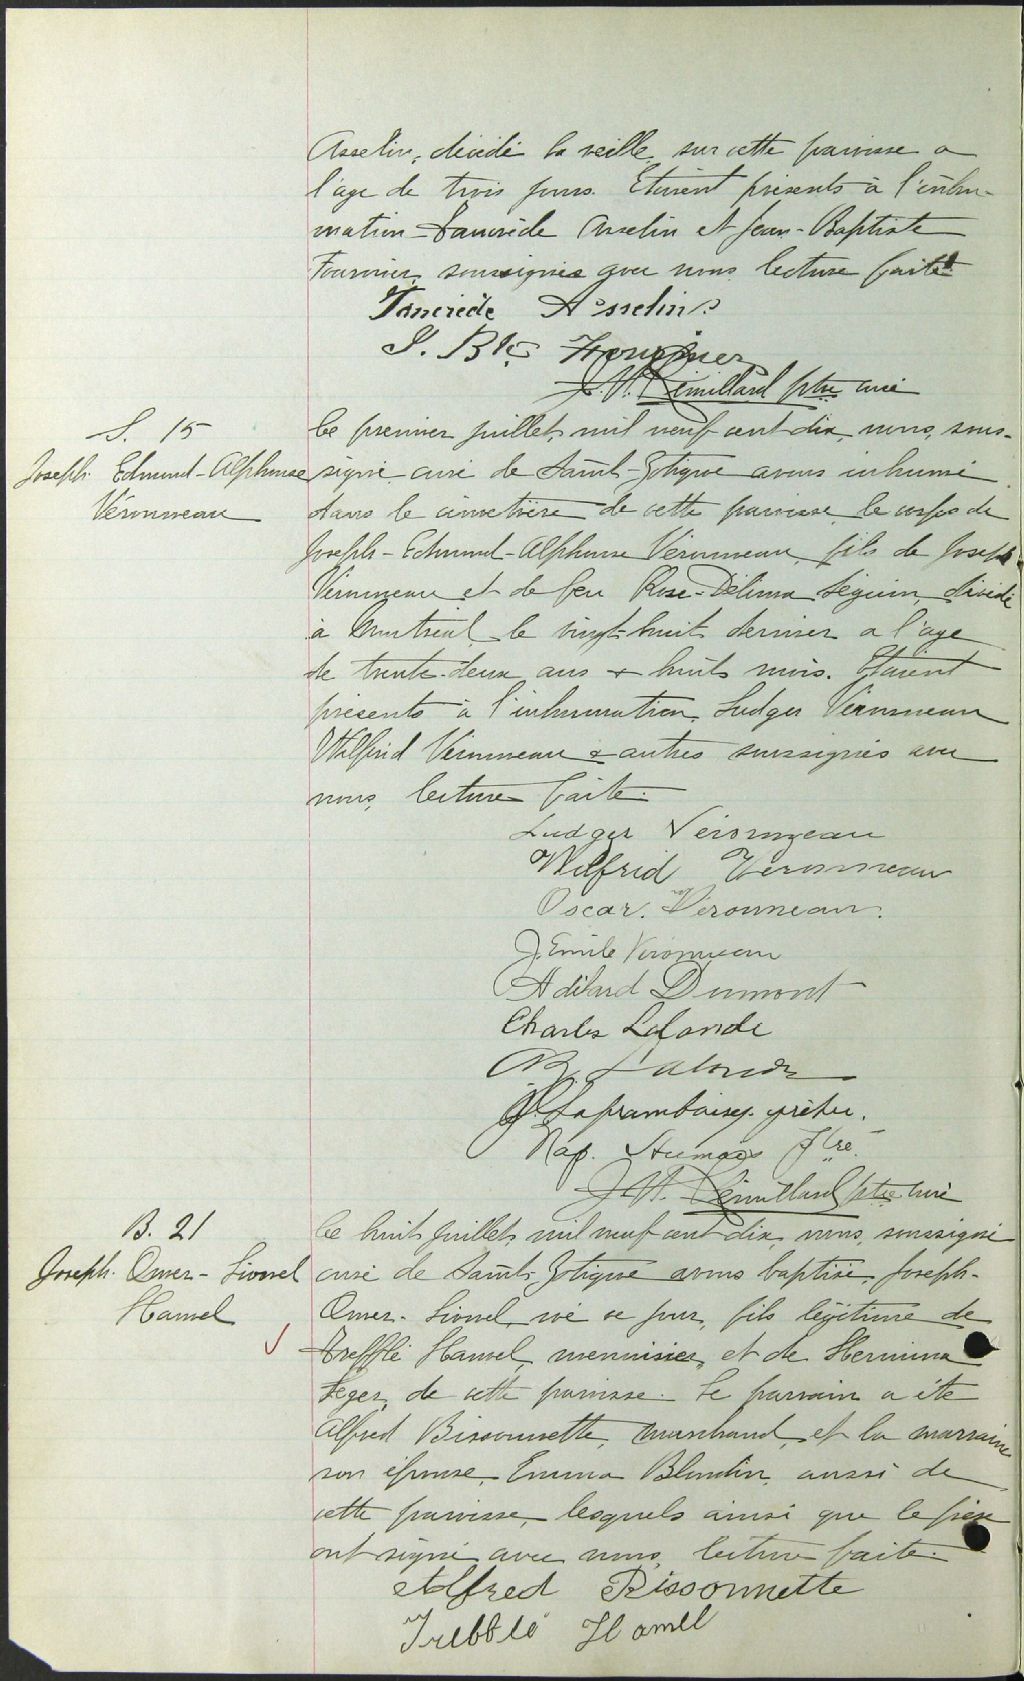 Asselin, décédé la veille, sur cette paroisse a
l'age de trois jours. Etaient présents à l'inhu-
mation Tancrède Asselin et Jean-Baptiste
Fournier, soussignés avec nous, lecture faite.
Tancrède Asselin
J. Bte Fournier
J. H. Rémillard ptre curé
S. 15
Joseph Edmund-Alphonse
Véronneau
Ce premier juillet, mil neuf cent dix, nous, sous-
signé curé de Saint-Zotique avons inhumé
dans le cimetière de cette paroisse le corps de
Joseph-Edmund-Alphonse Véronneau, fils de Joseph
Véronneau et de feu Rose-Délima Séguin, décédé
à Montréal le vingt-huit dernier a l'age
de trente-deux ans & huits mois. Etaient
présents à l'inhumation, Ludger Véronneau
Wilfrid Véronneau & autres soussignés avec
nous, lecture faite.
Ludger Véronneau
Wilfrid Véronneau
Oscar. Véronneau.
J. Emile Véronneau
Adélard Dumont
Charles Lalonde
Lalonde
Laframboise. prêtre.
Nap. ptre.
J. H. Rémillard ptre curé
B. 21
Joseph-Omer-Lionel
Hamel
Ce huit juillet, mil neuf cent dix, nous, soussigné
curé de Saint-Zotique avons baptisé, Joseph-
Omer-Lionel, né ce jour, fils légitime de
Trefflé Hamel, menuisier, et de Hermina
Leger, de cette paroisse. Le parrain a été
Alfred Bissonnette, marchand, et la marraine
son épouse, Emma Blondin, aussi de
cette paroisse, lesquels ainsi que le père
ont signé avec nous, lecture faite.
Alfred Bissonnette
Trefflé Hamel